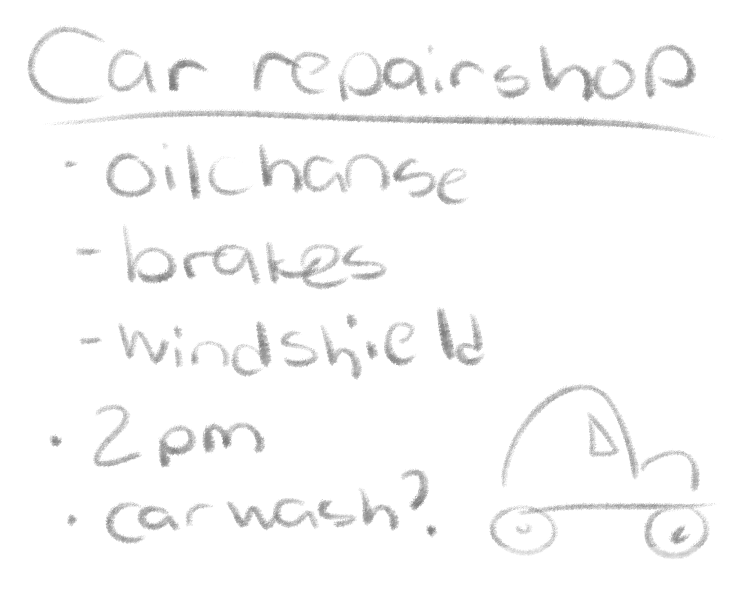 Car repairshop
- oilchange
- brakes
- windshield
• 2 pm
• car wash?